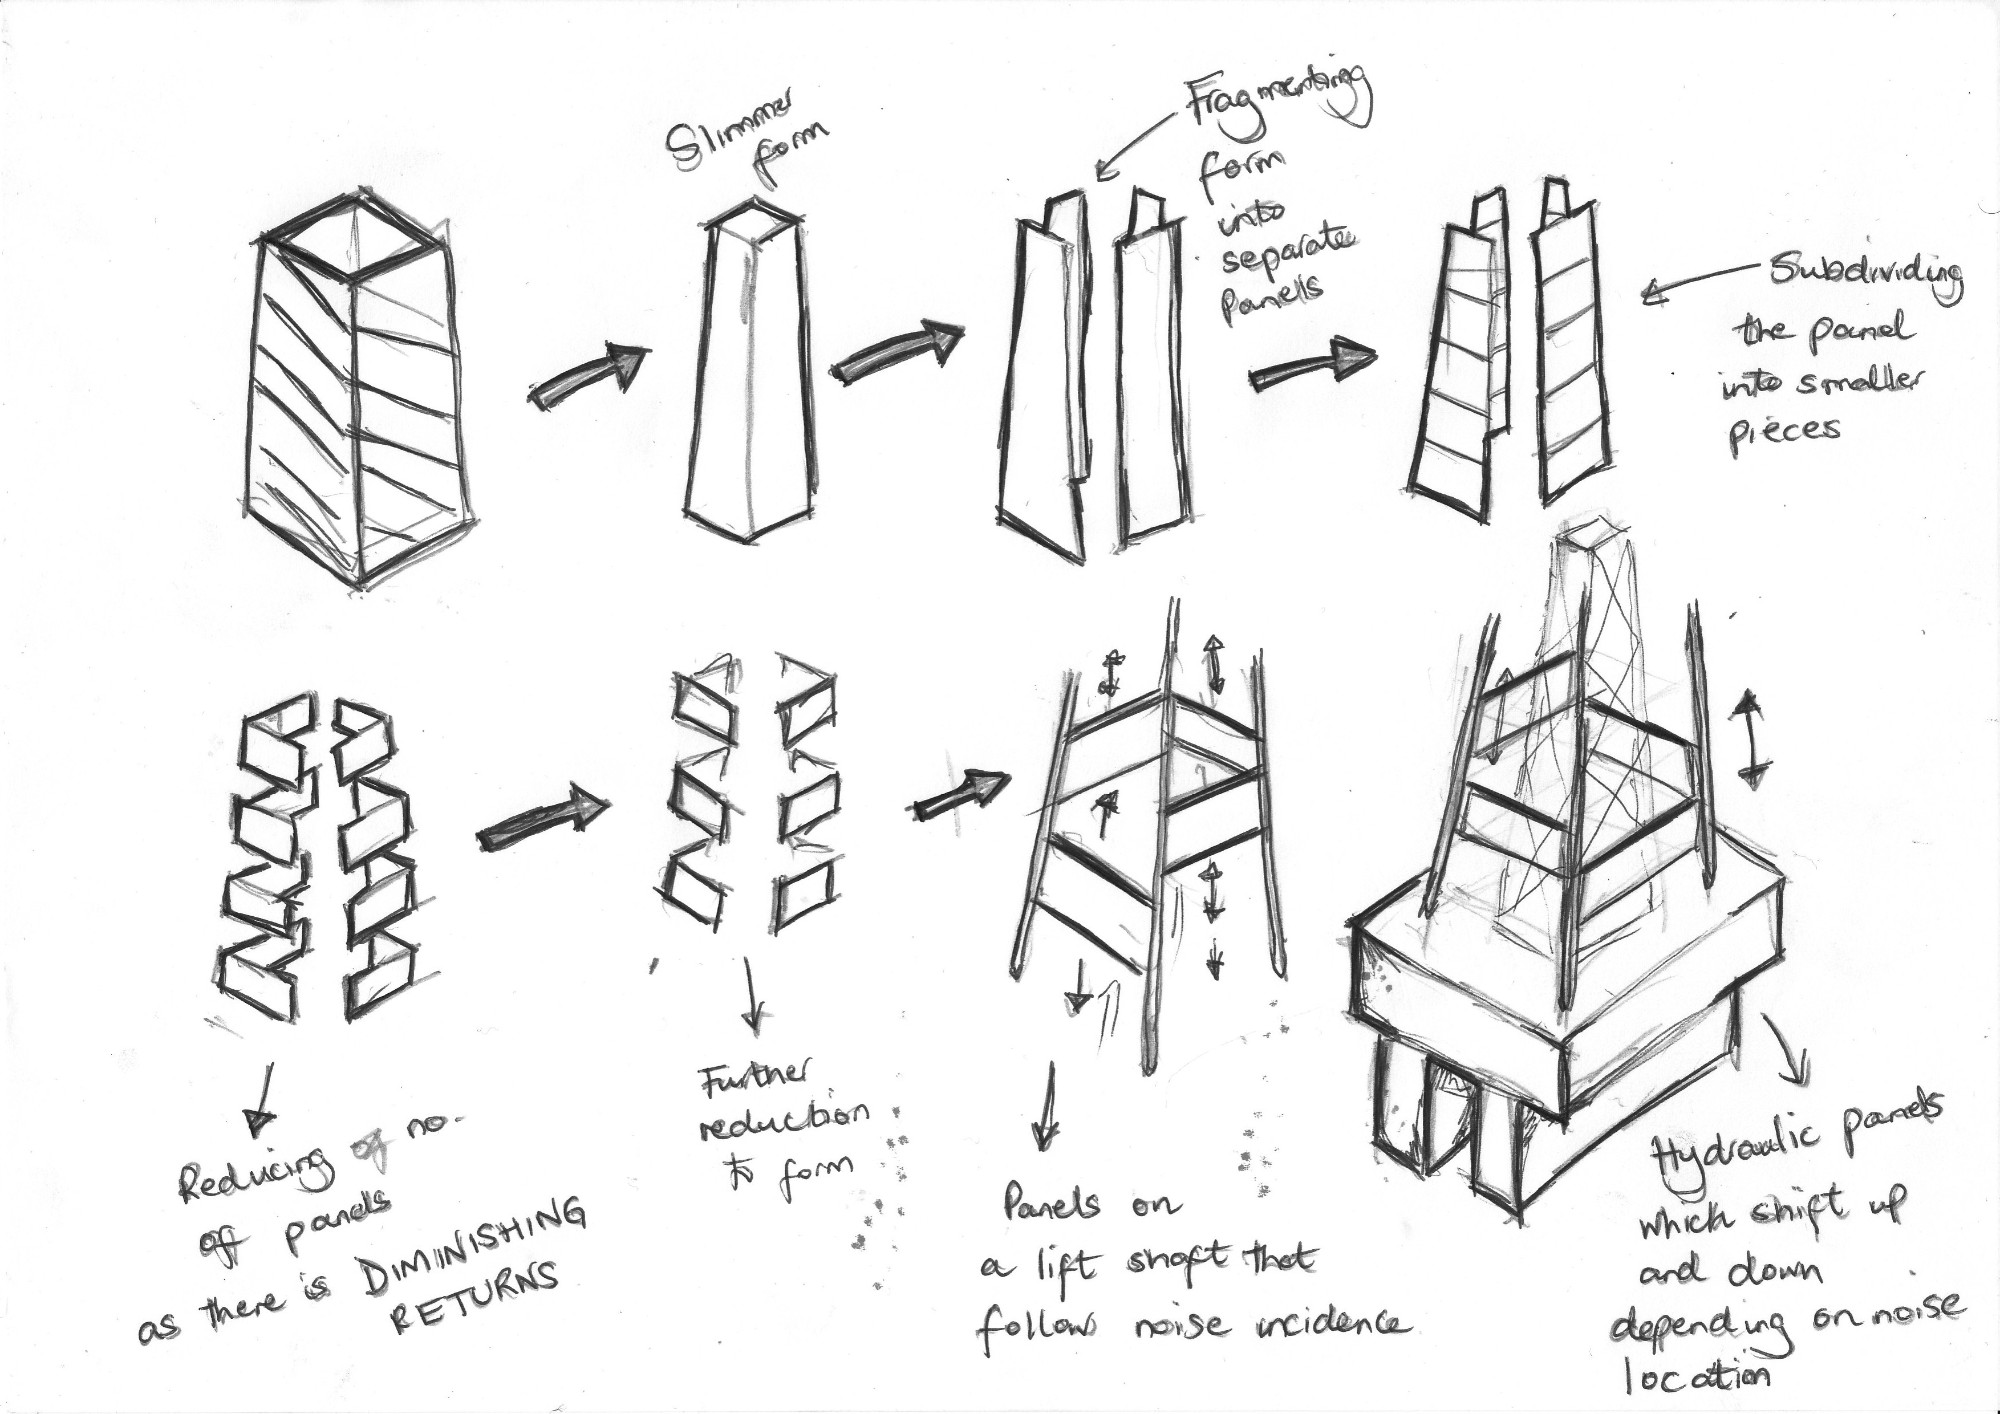 Slimmer
form
Fragmenting
form
into
separate
Panels
Subdividing
the panel
into smaller
pieces
Reducing of no.
off panels
as there is DIMINISHING
RETURNS
Further
reduction
to form
Panels on
a lift shaft that
follow noise incidence
Hydraulic panels
which shift up
and down
depending on noise
location